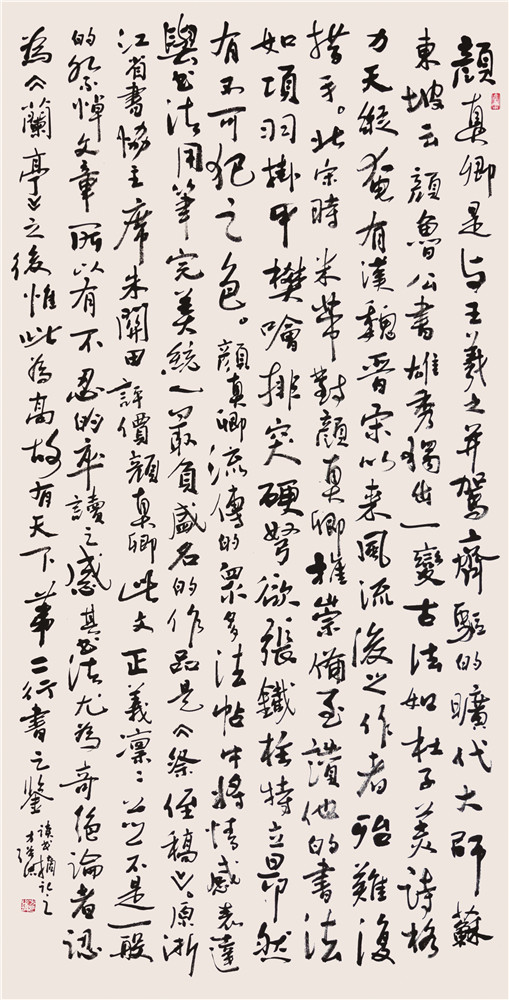 顔真卿是与王羲之并駕齊驅的曠代大師蘇
東坡云顔魯公書雄秀獨出一變古法如杜子美詩格
力天縱奄有漢魏晋宋以来風流後之作者殆難復
措手。北宗時米芾對顔真卿推崇備至讃他的書法
如項羽掛甲樊噲排突硬弩欲張鐵柱特立昻然
有不可犯之色。顔真卿流傳的衆多法帖中將情感表達
與書法用筆完美統一最負盛名的作品是《祭侄稿》。原浙
江省書協主席朱關田評價顔真卿此文正義凜〻 不是一般
的祭悼文章所以有不忍的卒讀之感其書法尤為奇絶論者認
為《蘭亭》之後惟此為高故有天下第二行書之鑒
讀書摘記之